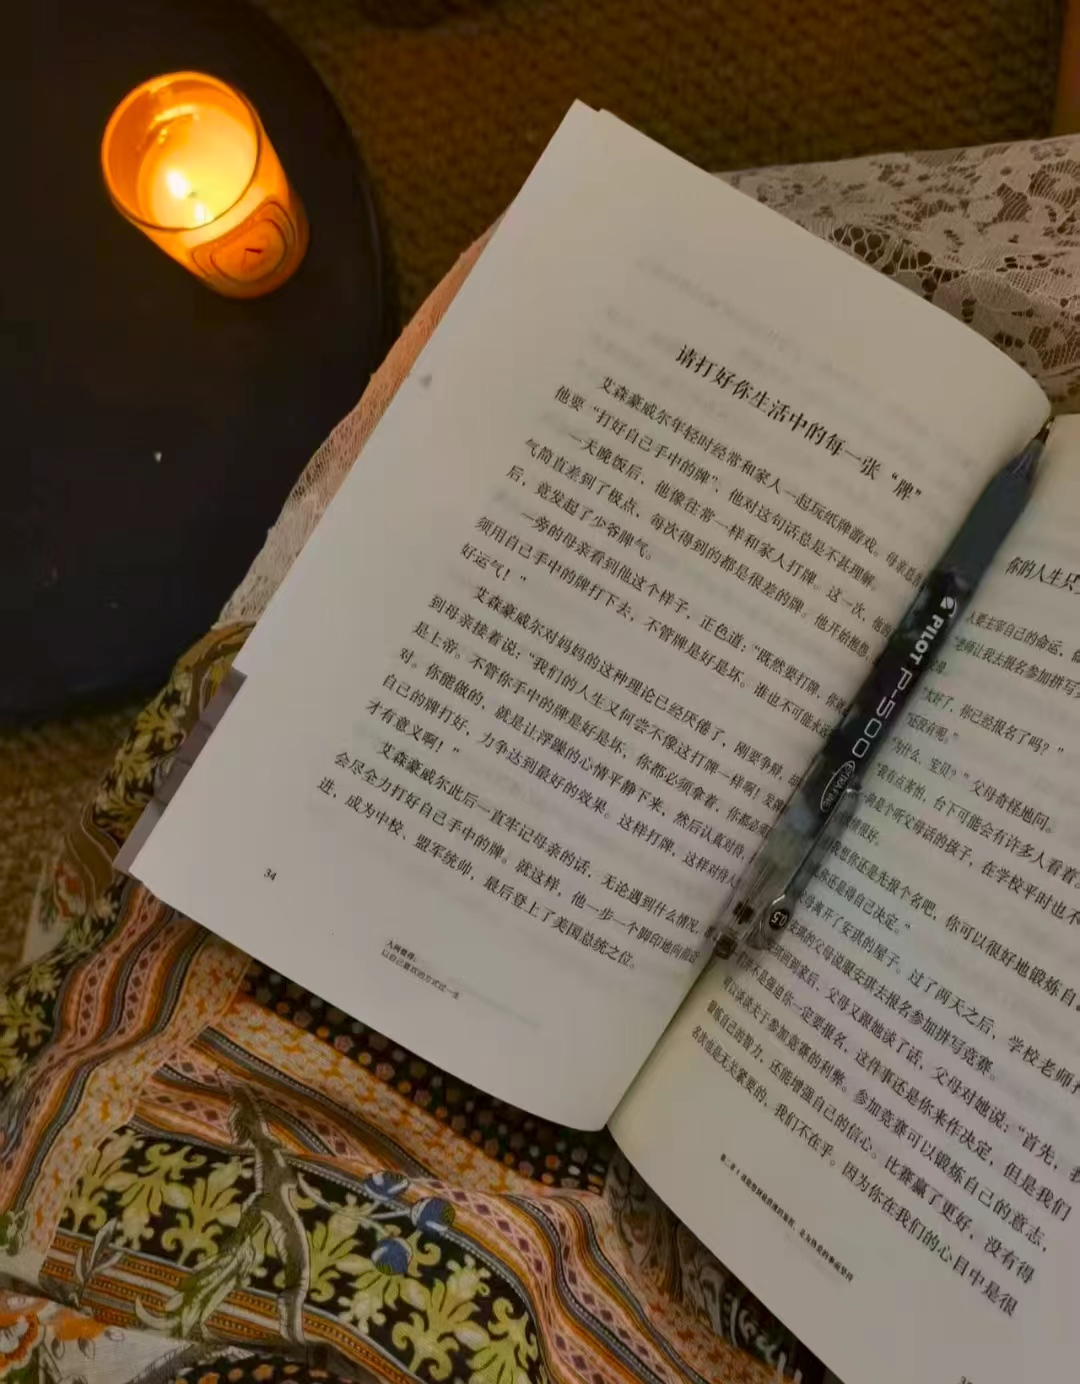 请打好你生活中的每一张“牌”
艾森豪威尔年轻时经常和家人一起玩纸牌游戏。母亲总告
他要“打好自己手中的牌”，他对这句话总是不甚理解。
一天晚饭后，他像往常一样和家人打牌。这一次，他的
气简直差到了极点，每次得到的都是很差的牌。他开始抱怨，
后，竟发起了少爷脾气。
一旁的母亲看到他这个样子，正色道：“既然要打牌，你
须用自己手中的牌打下去，不管牌是好是坏。谁也不可能永远
好运气！”
艾森豪威尔对妈妈的这种理论已经厌倦了，刚要争辩，
到母亲接着说：“我们的人生又何尝不像这打牌一样啊！发牌
是上帝。不管你手中的牌是好是坏，你都必须拿着，你都必须
对。你能做的，就是让浮躁的心情平静下来，然后认真对待，
自己的牌打好，力争达到最好的效果。这样打牌，这样对待人
才有意义啊！”
艾森豪威尔此后一直牢记母亲的话，无论遇到什么情况，
会尽全力打好自己手中的牌。就这样，他一步一个脚印地向前迈
进，成为中校、盟军统帅，最后登上了美国总统之位。
34
人间值得：
以自己喜欢的方式过一生
PILOT P-500
0.5
你的人生只
人要主宰自己的命运，
“老师让我去报名参加拼写
“太好了，你已经报名了吗？”
“还没有呢。”
“为什么，宝贝？”父母奇怪地问。
“我有点害怕，台下可能会有许多人看着。
一向是个听父母话的孩子，在学校平时也不
我想你还是先报个名吧，你可以很好地锻炼自
你还是得自己决定。”
父母离开了安琪的屋子。过了两天之后，学校老师打
安琪的父母说服安琪去报名参加拼写竞赛。
安琪回到家后，父母又跟她谈了话，父母对她说：“首先，我
们不是强迫你一定要报名，这件事还是你来作决定，但是我们
可以谈谈关于参加竞赛的利弊。参加竞赛可以锻炼自己的意志，
锻炼自己的智力，还能增强自己的信心。比赛赢了更好，没有得
名次也是无关紧要的，我们不在乎。因为你在我们的心目中是很